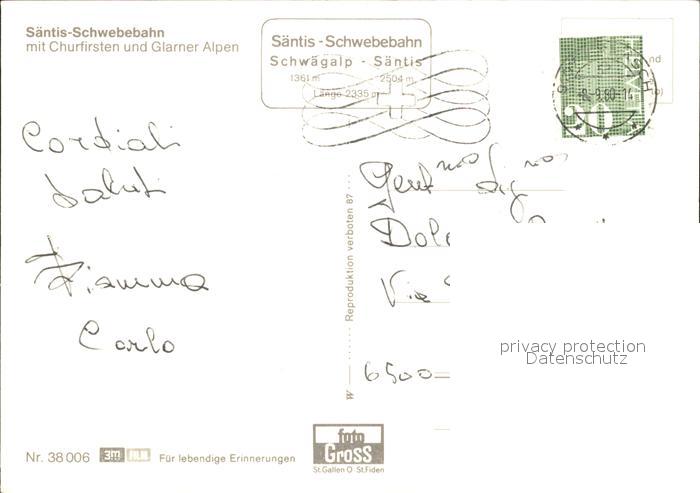 Säntis-Schwebebahn
mit Churfirsten und Glarner Alpen
Säntis-Schwebebahn
Schwägalp - Säntis
1361 m 2504 m
Länge 2335 m
20
Cordiali
Saluti
Fiamma
Carlo
Gent.ma Sig.na
Dol
Via
6500
Reproduktion verboten 87
privacy protection
Datenschutz
Nr. 38 006 3m
Für lebendige Erinnerungen
foto
Gross
St. Gallen O St. Fiden